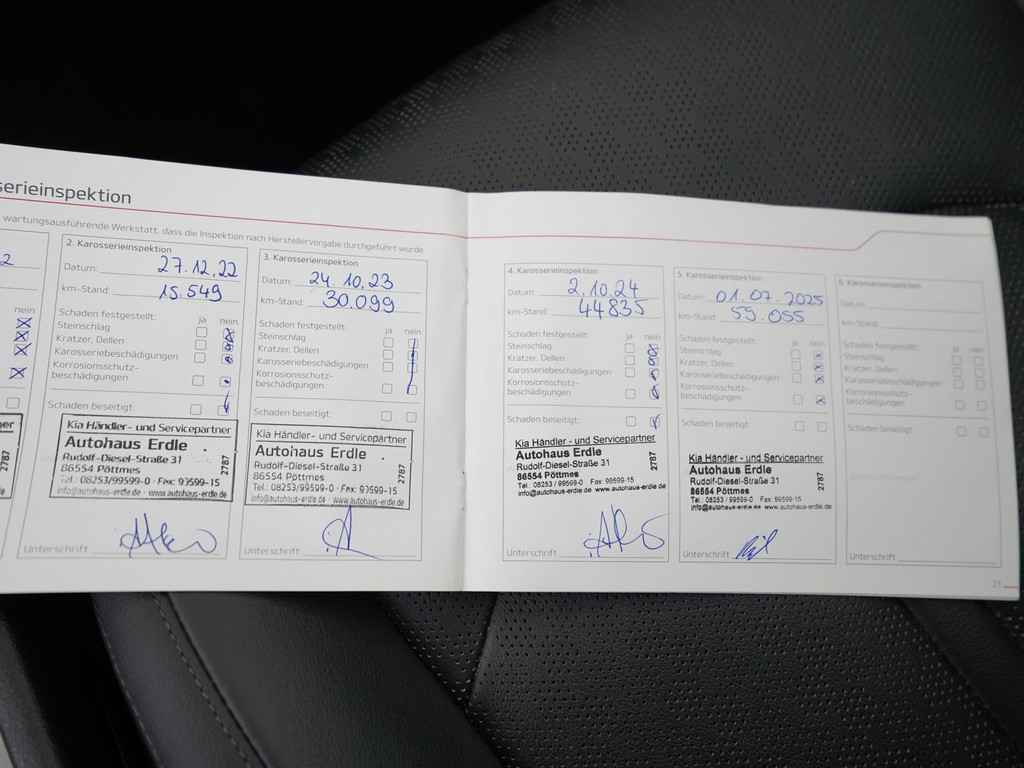 serieinspektion
wartungsausführende Werkstatt, dass die Inspektion nach Herstellervorgabe durchgeführt wurde.
2
nein
2787
2. Karosserieinspektion
Datum: 27.12.22
km-Stand: 15.549
Schäden festgestellt: ja nein
Steinschlag
Kratzer, Dellen
Karosseriebeschädigungen
Korrosionsschutz-
beschädigungen
Schäden beseitigt:
Kia Händler- und Servicepartner
Autohaus Erdle
Rudolf-Diesel-Straße 31
86554 Pöttmes
Tel.: 08253/99599-0 · Fax: 99599-15
info@autohaus-erdle.de · www.autohaus-erdle.de
2787
Unterschrift
3. Karosserieinspektion
Datum: 24.10.23
km-Stand: 30.099
Schäden festgestellt: ja nein
Steinschlag
Kratzer, Dellen
Karosseriebeschädigungen
Korrosionsschutz-
beschädigungen
Schäden beseitigt:
Kia Händler- und Servicepartner
Autohaus Erdle
Rudolf-Diesel-Straße 31
86554 Pöttmes
Tel.: 08253/99599-0 · Fax: 99599-15
info@autohaus-erdle.de · www.autohaus-erdle.de
2787
Unterschrift
4. Karosserieinspektion
Datum: 2.10.24
km-Stand: 44835
Schäden festgestellt: ja nein
Steinschlag
Kratzer, Dellen
Karosseriebeschädigungen
Korrosionsschutz-
beschädigungen
Schäden beseitigt:
Kia Händler - und Servicepartner
Autohaus Erdle
Rudolf-Diesel-Straße 31
86554 Pöttmes
Tel.: 08253 / 99599-0 Fax: 99599-15
info@autohaus-erdle.de www.autohaus-erdle.de
2787
Unterschrift
5. Karosserieinspektion
Datum: 01.07.2025
km-Stand: 59.055
Schäden festgestellt: ja nein
Steinschlag
Kratzer, Dellen
Karosseriebeschädigungen
Korrosionsschutz-
beschädigungen
Schäden beseitigt:
Kia Händler - und Servicepartner
Autohaus Erdle
Rudolf-Diesel-Straße 31
86554 Pöttmes
Tel.: 08253 / 99599-0 Fax: 99599-15
info@autohaus-erdle.de www.autohaus-erdle.de
2787
Unterschrift
6. Karosserieinspektion
Datum:
km-Stand:
Schäden festgestellt: ja nein
Steinschlag
Kratzer, Dellen
Karosseriebeschädigungen
Korrosionsschutz-
beschädigungen
Schäden beseitigt:
Unterschrift
21